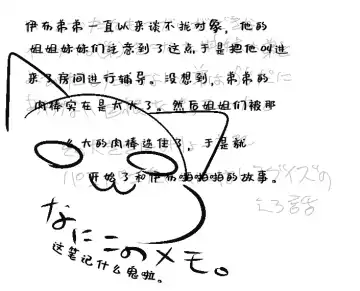 伊布弟弟一直以来谈不找对象，他的
姐姐妹妹们注意到了这点于是把他叫进
来了房间进行辅导。没想到，弟弟的
肉棒实在是太大了。然后姐姐们被那
么大的肉棒迷住了，于是就
开始了和伊布啪啪啪的故事。
なにこのメモ。
这笔记什么鬼啦。